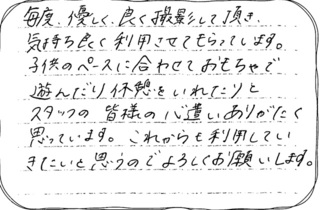 毎度、優しく、良く撮影して頂き、
気持ち良く利用させてもらっています。
子供のペースに合わせておもちゃで
遊んだり休憩をいれたりと
スタッフの皆様の心遣いありがたく
思っています。これからも利用してい
きたいと思うのでよろしくお願いします。